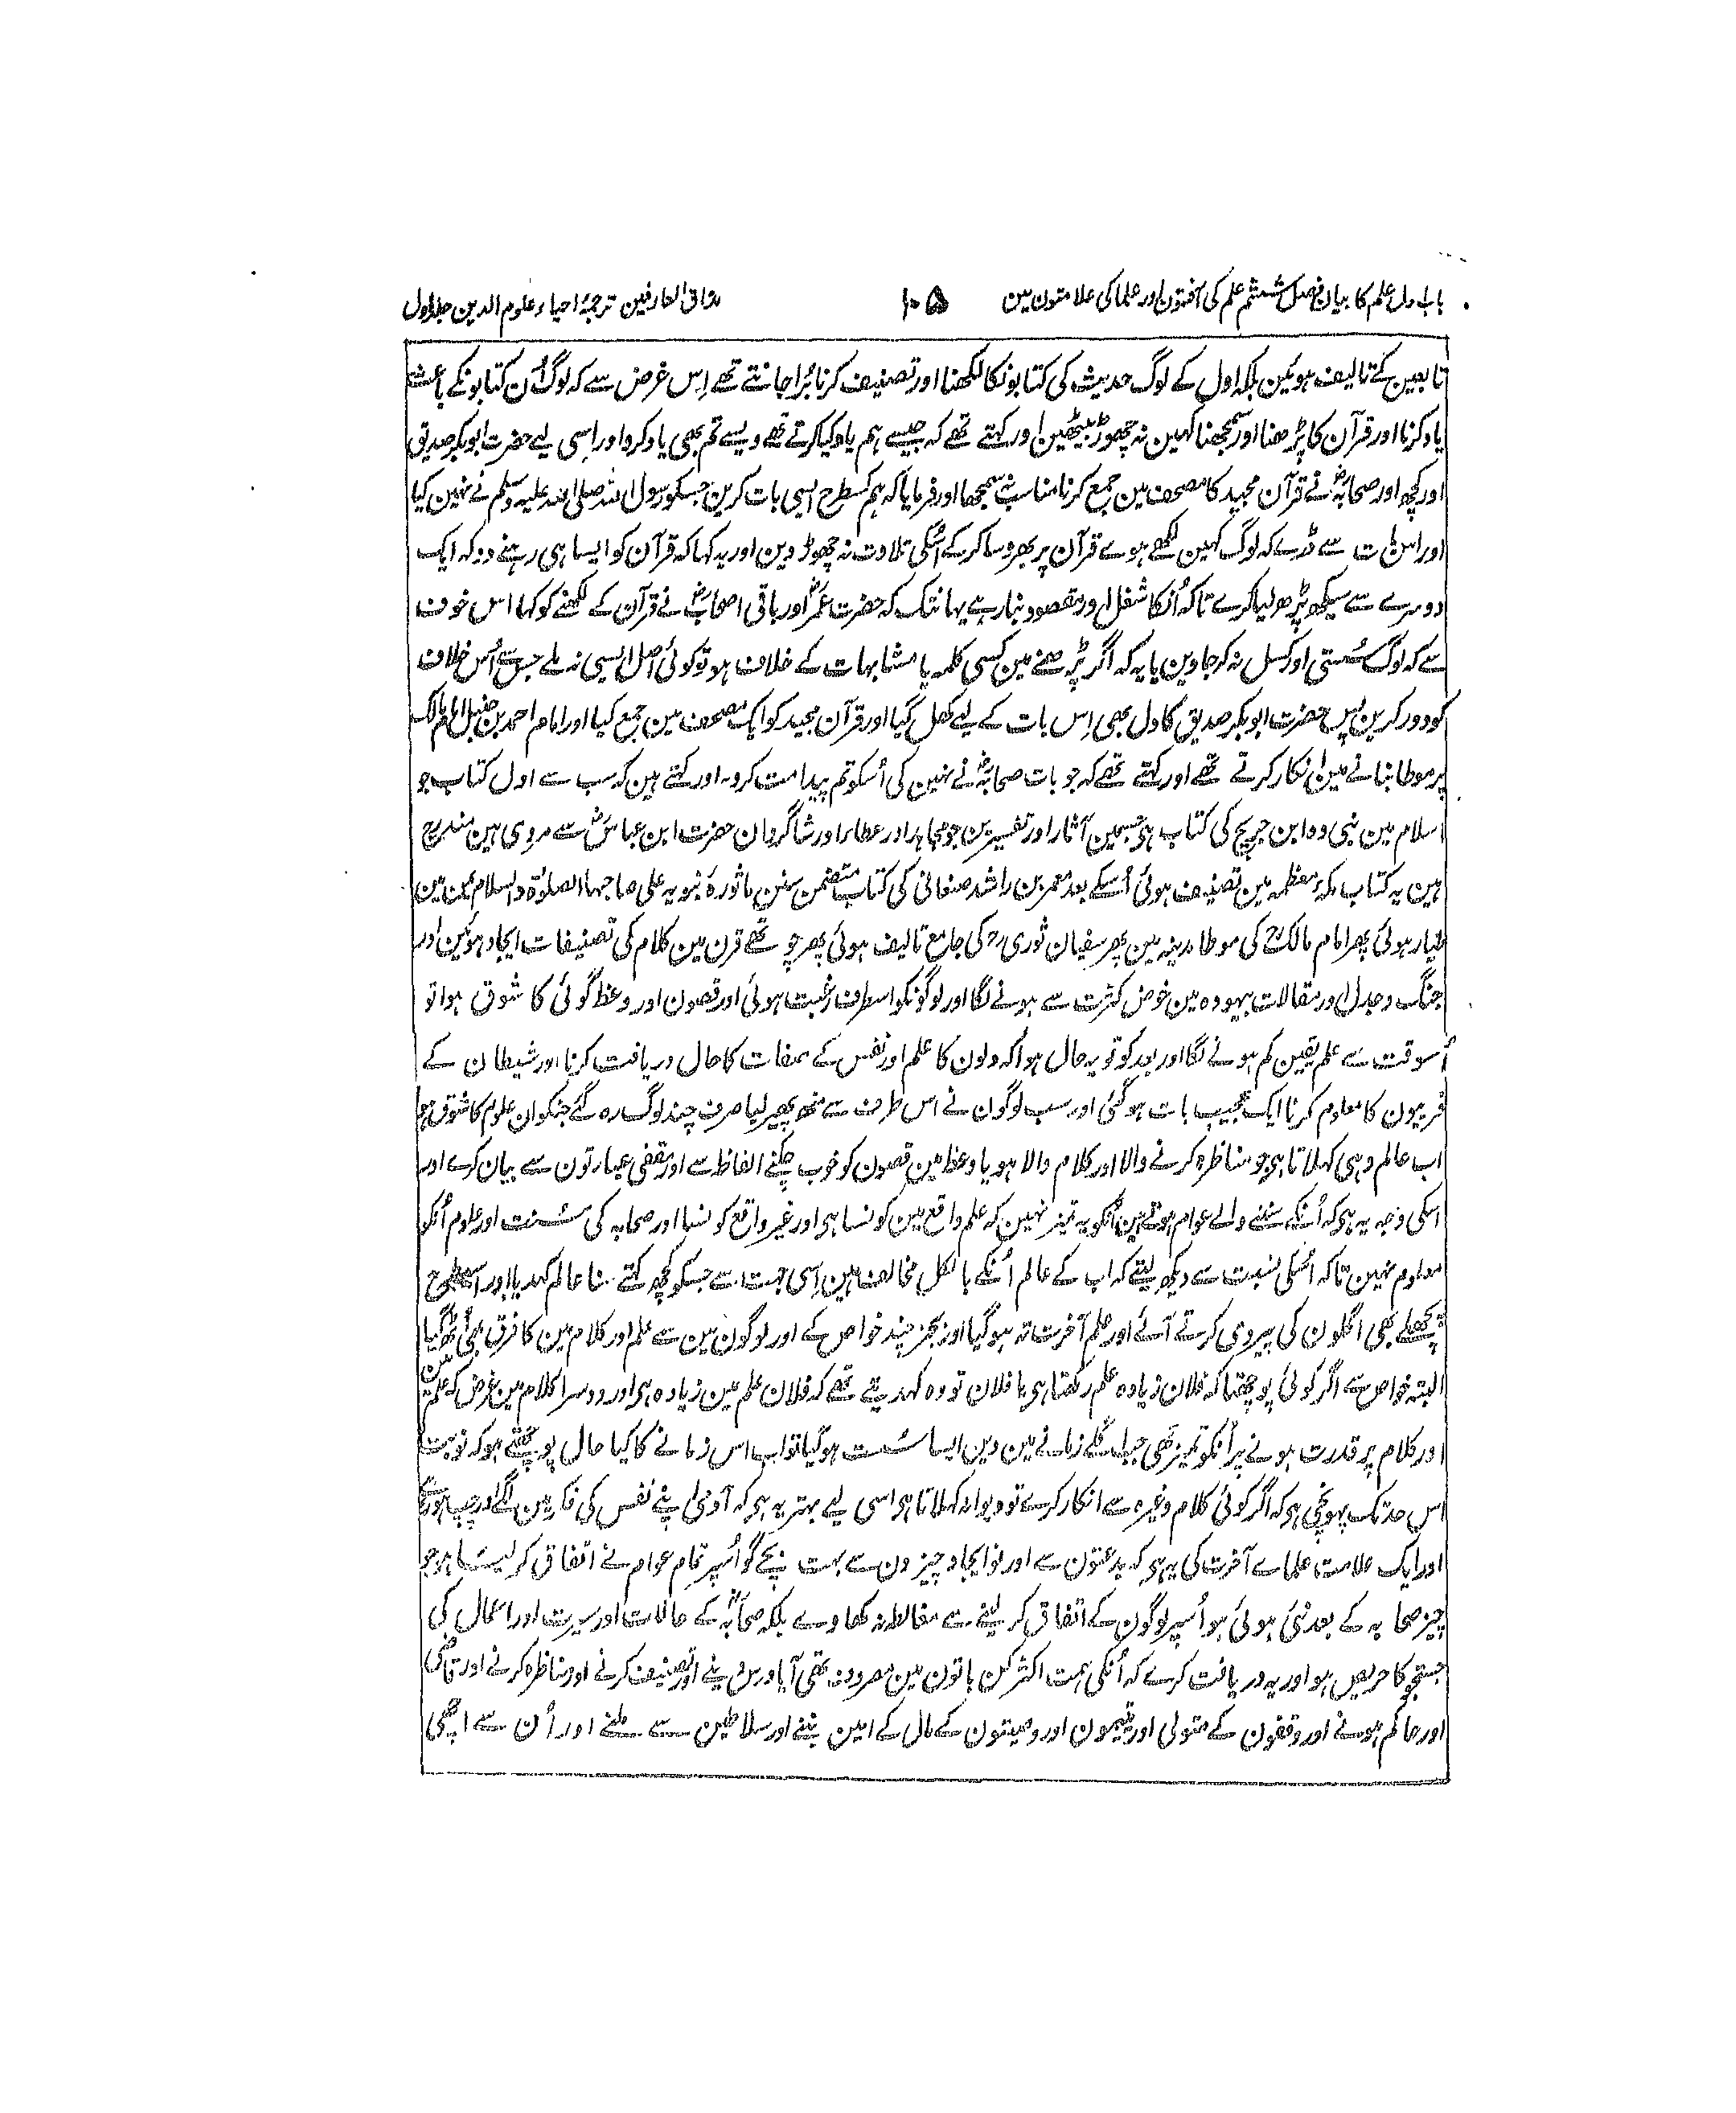 باب اول علم کا بیان فصل ششم علم کی آفتون اور علما کی علامتون مین
۱۰۵
مذاق العارفین ترجمۂ احیاء علوم الدین جلد اول
تابعین کے تالیف ہوئین بلکہ اول کے لوگ حدیث کی کتابونکا لکھنا اور تصنیف کرنا بُرا جانتے تھے اِس غرض سے کہ لوگ اُن کتابونکے باعث
یاد کرنا اور قرآن کا پڑھنا اور سمجھنا کہین نہ چھوڑ بیٹھین اور کہتے تھے کہ جیسے ہم یاد کیا کرتے تھے ویسے تم بھی یاد کرو اور اسی لیے حضرت ابوبکر صدیق
اور کچھ اور صحابہؓ نے قرآن مجید کا مصحف مین جمع کرنا مناسب نہ سمجھا اور فرمایا کہ ہم کسطرح ایسی بات کرین جسکو رسول اللہ صلی اللہ علیہ وسلم نے نہین کیا
اور اس بات سے ڈرے کہ لوگ کہین لکھے ہوے قرآن پر بھروسا کرکے اُسکی تلاوت نہ چھوڑ دین اور یہ کہا کہ قرآن کو ایسا ہی رہنے دو کہ ایک
دوسرے سے سیکھ پڑھ لیا کرے تاکہ اُنکا شغل اور مقصود بنا رہے یہانتک کہ حضرت عمرؓ اور باقی اصحابؓ نے قرآن کے لکھنے کو کہا اس خوف
سے کہ لوگ سُستی اور کسل نہ کر جاوین یا یہ کہ اگر پڑھنے مین کسی کلمہ یا متشابہات کے خلاف ہو تو کوئی اصل ایسی نہ ملے جس سے اُس خلاف
کو دور کرین پس حضرت ابوبکر صدیق کا دل بھی اِس بات کے لیے کھل گیا اور قرآن مجید کو ایک مصحف مین جمع کیا اور امام احمد بن حنبل امام مالک
پر موطا بنانے مین انکار کرتے تھے اور کہتے تھے کہ جو بات صحابہؓ نے نہین کی اُسکو تم پیدا مت کرو۔ اور کہتے ہین کہ سب سے اول کتاب جو
اسلام مین بنی وہ ابن جریج کی کتاب ہی جسمین آثار اور تفسیرین جو مجاہد اور عطاء اور شاگردان حضرت ابن عباسؓ سے مروی ہین مندرج
ہین یہ کتاب مکہ معظمہ مین تصنیف ہوئی اُسکے بعد معمر بن راشد صنعانی کی کتاب متضمن سنن ماثورۂ نبویہ علی صاحبہا الصلوٰۃ والسلام یمن مین
طیار ہوئی پھر امام مالکؒ کی موطا مدینہ مین پھر سفیان ثوریؒ کی جامع تالیف ہوئی پھر چوتھے قرن مین کلام کی تصنیفات ایجاد ہوئین اور
جنگ وجدل اور مقالات بیہودہ مین خوض کثرت سے ہونے لگا اور لوگونکو اسطرف رغبت ہوئی اور قصون اور وعظ گوئی کا شوق ہوا تو
اُسوقت سے علم یقین کم ہونے لگا اور بعد کو تو یہ حال ہوا کہ دلون کا علم اور نفس کے صفات کا حال دریافت کرنا اور شیطان کے
فریبون کا معلوم کرنا ایک عجیب بات ہوگئی اور سب لوگون نے اس طرف سے منھ پھیر لیا صرف چند لوگ رہ گئے جنکو ان علوم کا شوق ہو
اب عالم وہی کہلاتا ہی جو مناظرہ کرنے والا اور کلام والا ہو یا وعظ مین قصون کو خوب چکنے الفاظ سے اور مقفی عبارتون سے بیان کرے اور
اسکی وجہ یہ ہی کہ اُنکے سننے والے عوام ہوتے ہین اُنکو یہ تمیز نہین کہ علم واقع مین کونسا ہی اور غیر واقع کونسا اور صحابہ کی سُنت اور علوم اُنکو
معلوم نہین تاکہ اُسکی نسبت سے دیکھ لیتے کہ اب کے عالم اُنکے بالکل مخالف ہین اِسی جہت سے جسکو کچھ کہتے سنا عالم کہدیا اور اسیطرح
پچھلے بھی اگلون کی پیروی کرتے آئے اور علم آخرت تہ ہوگیا اور بجز چند خواص کے اور لوگون مین سے علم اور کلام مین کا فرق بھی اُٹھ گیا
البتہ خواص سے اگر کوئی پوچھتا کہ فلان زیادہ علم رکھتا ہی یا فلان تو وہ کہدیتے تھے کہ فلان علم مین زیادہ ہی اور دوسرا کلام مین غرض کہ علم مین
اور کلام پر قدرت ہونے پر اُنکو تمیز تھی جب اگلے زمانے مین دین ایسا سُست ہوگیا تو اب اس زمانے کا کیا حال پوچھتے ہو کہ نوبت
اس حد تک پہونچی ہی کہ اگر کوئی کلام وغیرہ سے انکار کرے تو دیوانہ کہلاتا ہی اسی لیے بہتر یہ ہی کہ آدمی اپنے نفس کی فکر مین لگے اور چپ ہو رہے
اور ایک علامت علماے آخرت کی یہ ہی کہ بدعتون سے اور نو ایجاد چیزون سے بہت بچے گو اُسپر تمام عوام نے اتفاق کر لیا ہو جو
چیز صحابہ کے بعد نئی ہوئی ہو اُسپر لوگون کے اتفاق کر لینے سے مغالطہ نہ کھاوے بلکہ صحابہؓ کے حالات اور سیرت اور اعمال کی
جستجو کا حریص ہو اور یہ دریافت کرے کہ اُنکی ہمت اکثر کن باتون مین مصروف تھی آیا درس دینے اور تصنیف کرنے اور مناظرہ کرنے اور قاضی
اور حاکم ہونے اور وقفون کے متولی اور یتیمون اور وصیتون کے مال کے امین بننے اور سلاطین سے ملنے اور اُن سے اچھی